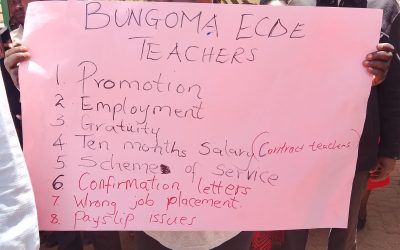 BUNGOMA ECDE
TEACHERS
1. Promotion
2. Employment
3 Gratuity
4 Ten months Salary (Contract teachers)
5 Scheme of Service
6. Confirmation letters
7 Wrong job placement.
8. Payslip issues